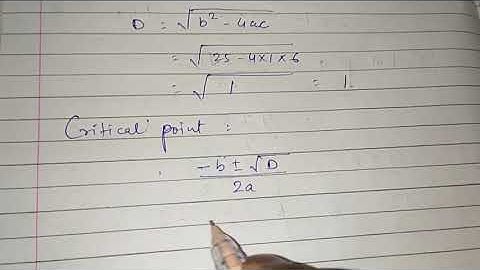 D = √b² - 4ac
= √25 - 4×1×6
= √1 = 1.
Critical point :
-b ± √D
2a